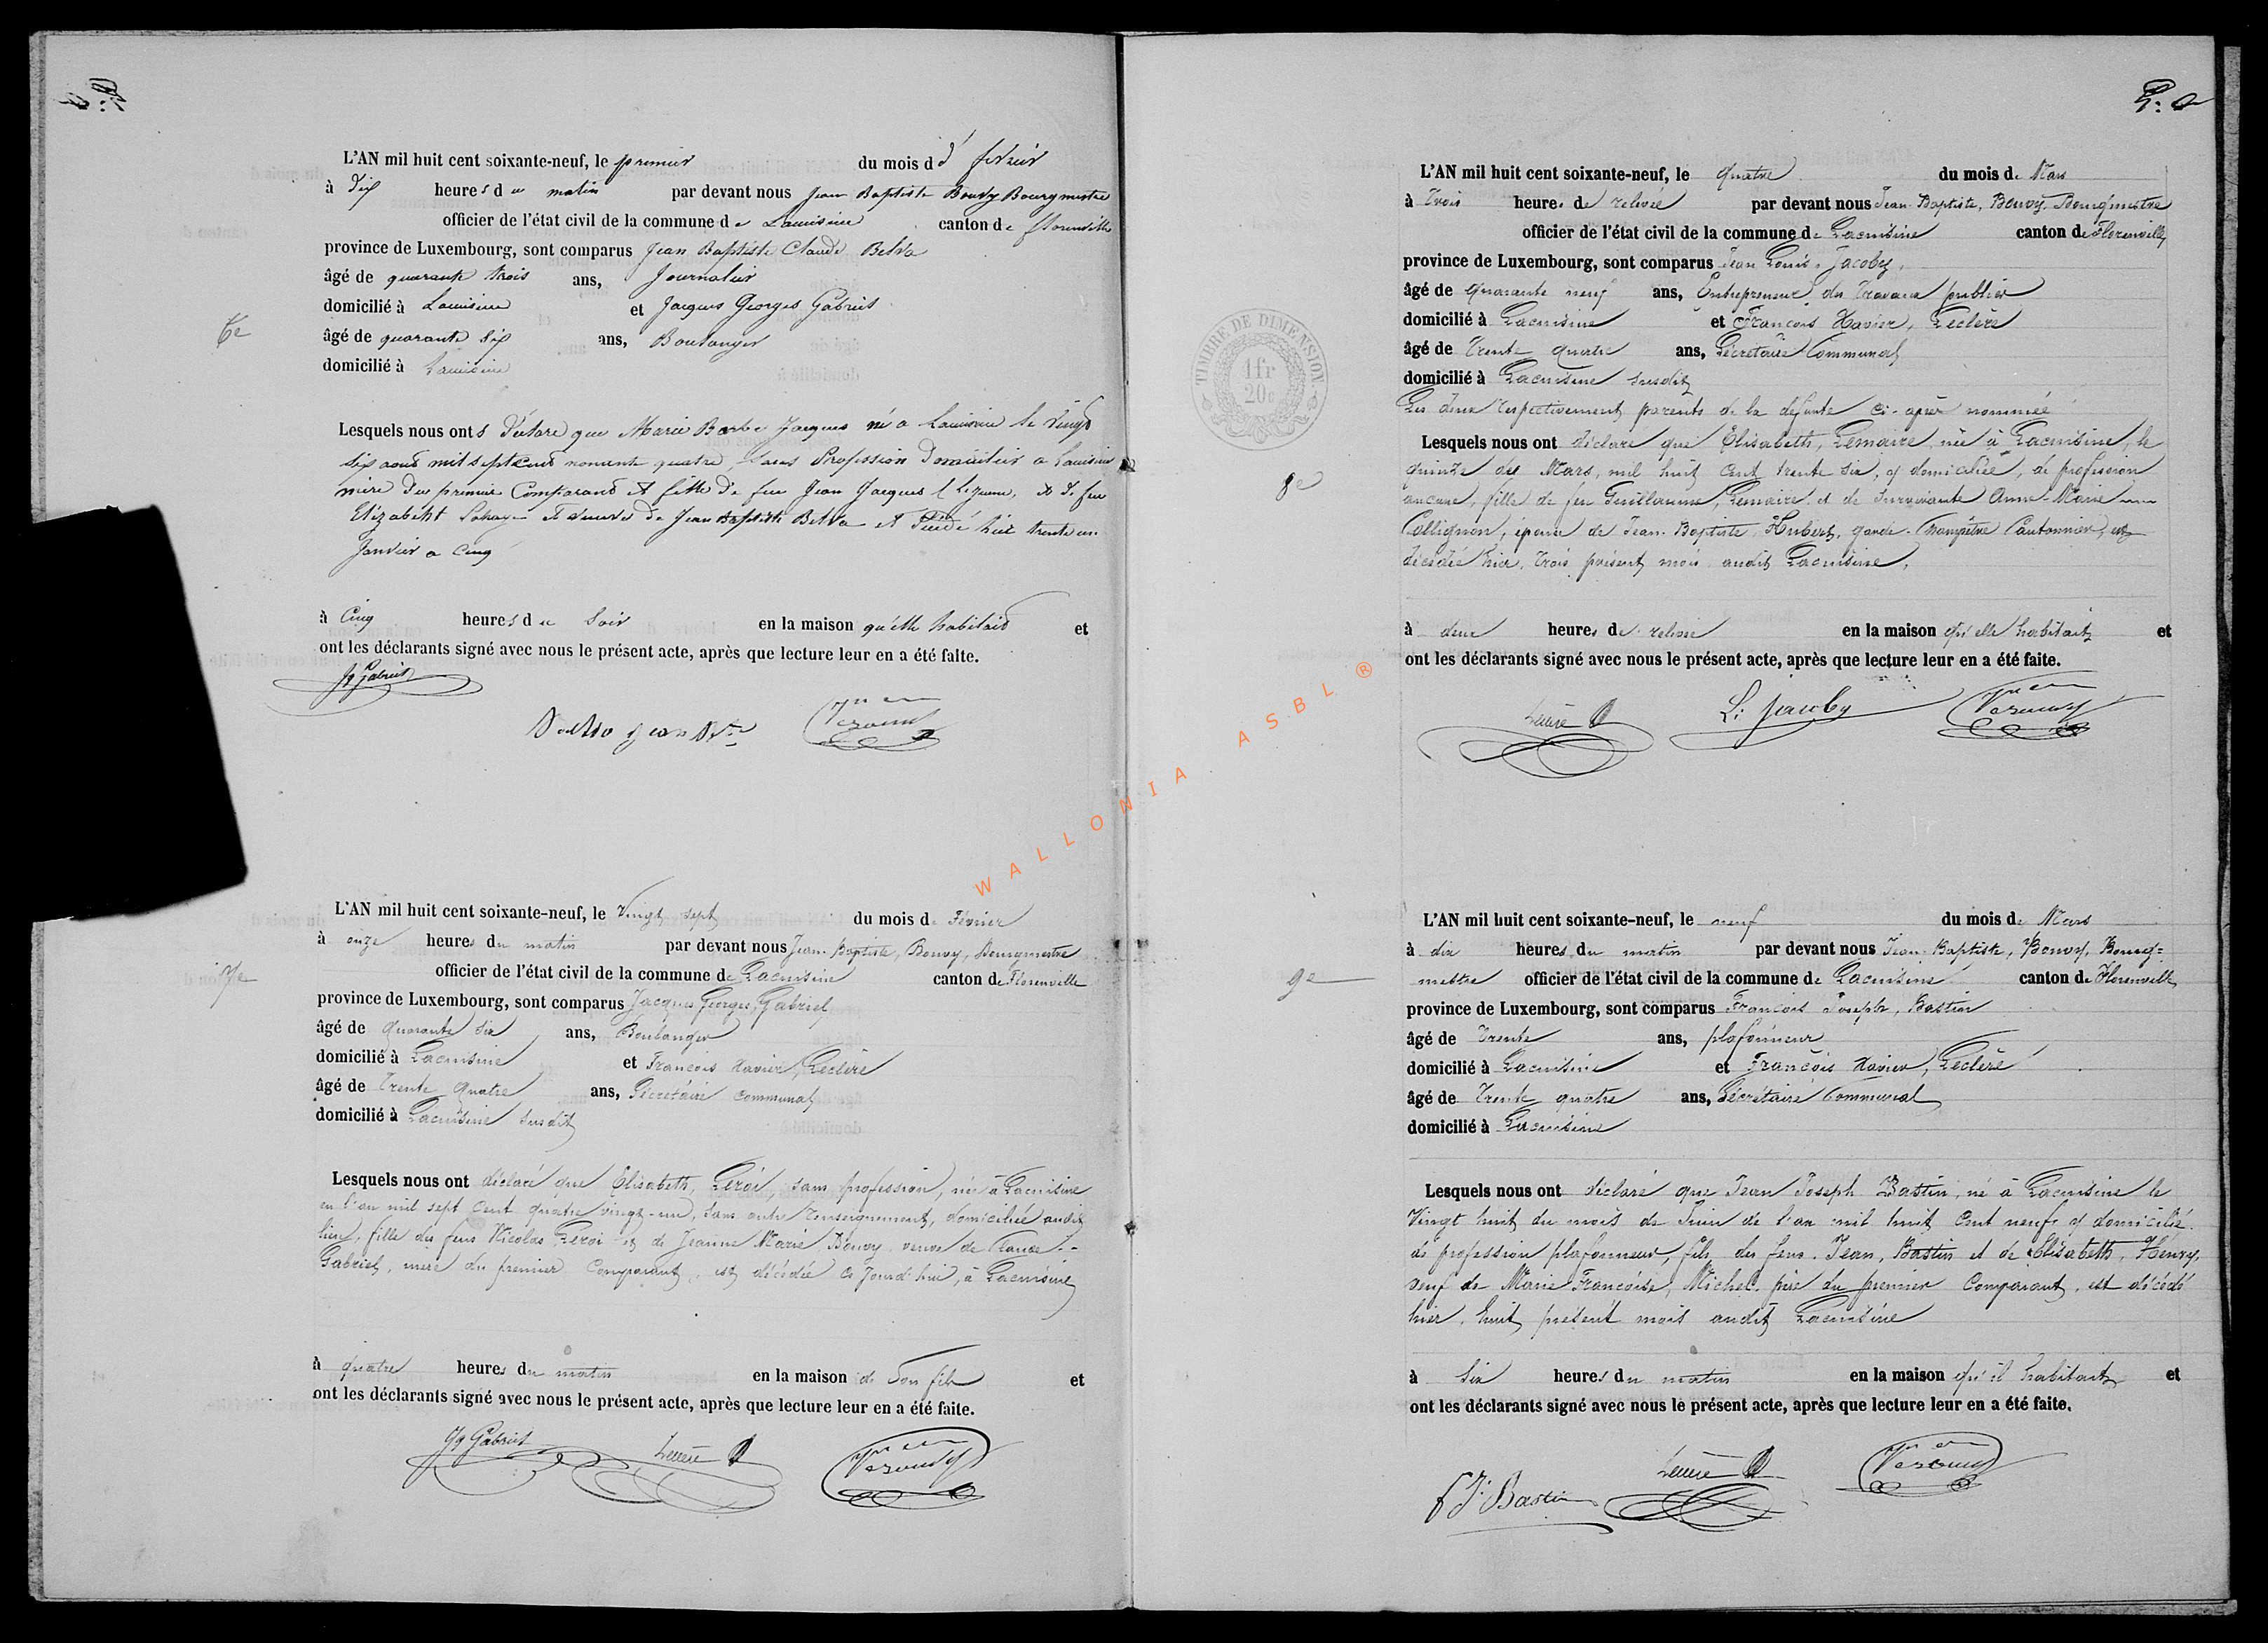 L'AN mil huit cent soixante-neuf, le premier du mois d d' fevrier
à dix heures du matin par devant nous Jean Baptiste Bouvy Bourgmestre
officier de l'état civil de la commune de Lacuisine canton de florenville
province de Luxembourg, sont comparus Jean Baptiste Claude Belva
âgé de quarante trois ans, Journalier
domicilié à Lacuisine et Jacques Georges Gabriel
6e
âgé de quarante six ans, Boulanger
domicilié à Lacuisine
Lesquels nous ont déclare que Marie Barbe Jacques né a Lacuisine le vingt
six aout mil sept cent nonante quatre, sans Profession Domicilier a Lacuisine
mère du premier Comparand et fille de feu Jean Jacques et de feu
Elizabeht et veuve de Jean Baptiste Belva et hier trente un
Janvier a Cinq
à Cinq heures du Soir en la maison qu'elle habitait et
ont les déclarants signé avec nous le présent acte, après que lecture leur en a été faite.
Jg Gabriel
Belva Jean Bte
L'AN mil huit cent soixante-neuf, le Vingt sept du mois de Février
à onze heures du matin par devant nous Jean-Baptiste, Bouvy, Bourgmestre
officier de l'état civil de la commune de Lacuisine canton de Florenville
7e
province de Luxembourg, sont comparus Jacques, Georges, Gabriel
âgé de quarante six ans, Boulanger
domicilié à Lacuisine et François Xavier, Leclère
âgé de Trente quatre ans, Sécrétaire communal
domicilié à Lacuisine susdit
Lesquels nous ont déclaré que Elisabeth, Leroi, sans profession, née à Lacuisine
en l'an mil sept cent quatre vingt-un, sans autre renseignement, domiciliée audit
lieu, fille des feus Nicolas Leroi et de Jeanne Marie Bouvy veuve de Claude
Gabriel, mère du premier Comparant, est décédée ce jourd'hui, à Lacuisine
à quatre heures du matin en la maison de Son fils et
ont les déclarants signé avec nous le présent acte, après que lecture leur en a été faite.
Jg Gabriel Leclère
L'AN mil huit cent soixante-neuf, le quatre du mois de Mars
à Trois heures de relevée par devant nous Jean-Baptiste, Bouvy, Bourgmestre
officier de l'état civil de la commune de Lacuisine canton de Florenville
province de Luxembourg, sont comparus Jean Louis, Jacoby,
âgé de quarante neuf ans, Entrepreneur des Travaux publics
domicilié à Lacuisine et François Xavier, Leclère
âgé de Trente quatre ans, Sécrétaire Communal
domicilié à Lacuisine susdit
Les deux respectivement parents de la défunte ci-après nommée
Lesquels nous ont déclaré que Elisabeth, Lemaire, née à Lacuisine, le
8e
quinze de Mars, mil huit cent trente six, y domiciliée, de profession
aucune, fille de feu Guillaume, Lemaire et de survivante Anne-Marie
Collignon, épouse de Jean-Baptiste, Hubert, garde-Champêtre Cantonnier, est
décédée hier, trois présent mois audit Lacuisine,
à deux heures de relevée en la maison qu'elle habitait et
ont les déclarants signé avec nous le présent acte, après que lecture leur en a été faite.
Leclère L: Jacoby
TIMBRE DE DIMENSION
1fr
20c
WALLONIA ASBL ®
L'AN mil huit cent soixante-neuf, le neuf du mois de Mars
à dix heures du matin par devant nous Jean-Baptiste, Bouvy, Bourg=
9e
mestre officier de l'état civil de la commune de Lacuisine canton de Florenville
province de Luxembourg, sont comparus François Joseph, Bastin
âgé de Trente ans, plafonneur
domicilié à Lacuisine et François Xavier, Leclère
âgé de Trente quatre ans, Sécrétaire Communal
domicilié à Lacuisine
Lesquels nous ont déclaré que Jean Joseph Bastin, né à Lacuisine le
Vingt huit du mois de Juin de l'an mil huit cent neuf, y domicilié
de profession plafonneur, fils des feus Jean, Bastin et de Elisabeth, Henry,
veuf de Marie Françoise, Michel, père du premier Comparant, est décédé
hier, huit présent mois audit Lacuisine
à six heures du matin en la maison qu'il habitait et
ont les déclarants signé avec nous le présent acte, après que lecture leur en a été faite.
F J. Bastin Leclère